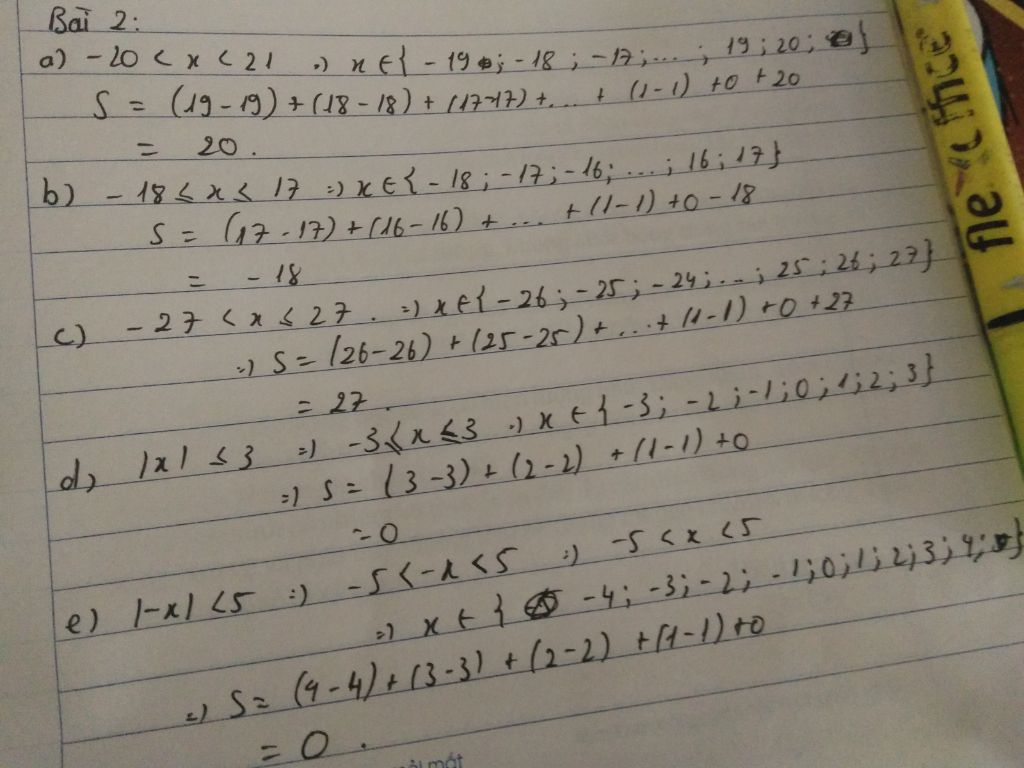 Bài 2:
a) -20 < x < 21 => x ∈ { -19 ; -18 ; -17 ; ... ; 19 ; 20 ; }
S = (19-19) + (18-18) + (17-17) + ... + (1-1) + 0 + 20
= 20.
b) -18 ≤ x ≤ 17 => x ∈ { -18 ; -17 ; -16 ; ... ; 16 ; 17 }
S = (17-17) + (16-16) + ... + (1-1) + 0 - 18
= -18
c) -27 < x ≤ 27. => x ∈ { -26 ; -25 ; -24 ; ... ; 25 ; 26 ; 27 }
=> S = (26-26) + (25-25) + ... + (1-1) + 0 + 27
= 27.
d) |x| ≤ 3 => -3 ≤ x ≤ 3 => x ∈ { -3 ; -2 ; -1 ; 0 ; 1 ; 2 ; 3 }
=> S = (3-3) + (2-2) + (1-1) + 0
= 0
e) |-x| < 5 => -5 < -x < 5 => -5 < x < 5
=> x ∈ { -4 ; -3 ; -2 ; -1 ; 0 ; 1 ; 2 ; 3 ; 4 ; }
=> S = (4-4) + (3-3) + (2-2) + (1-1) + 0
= 0.
mật